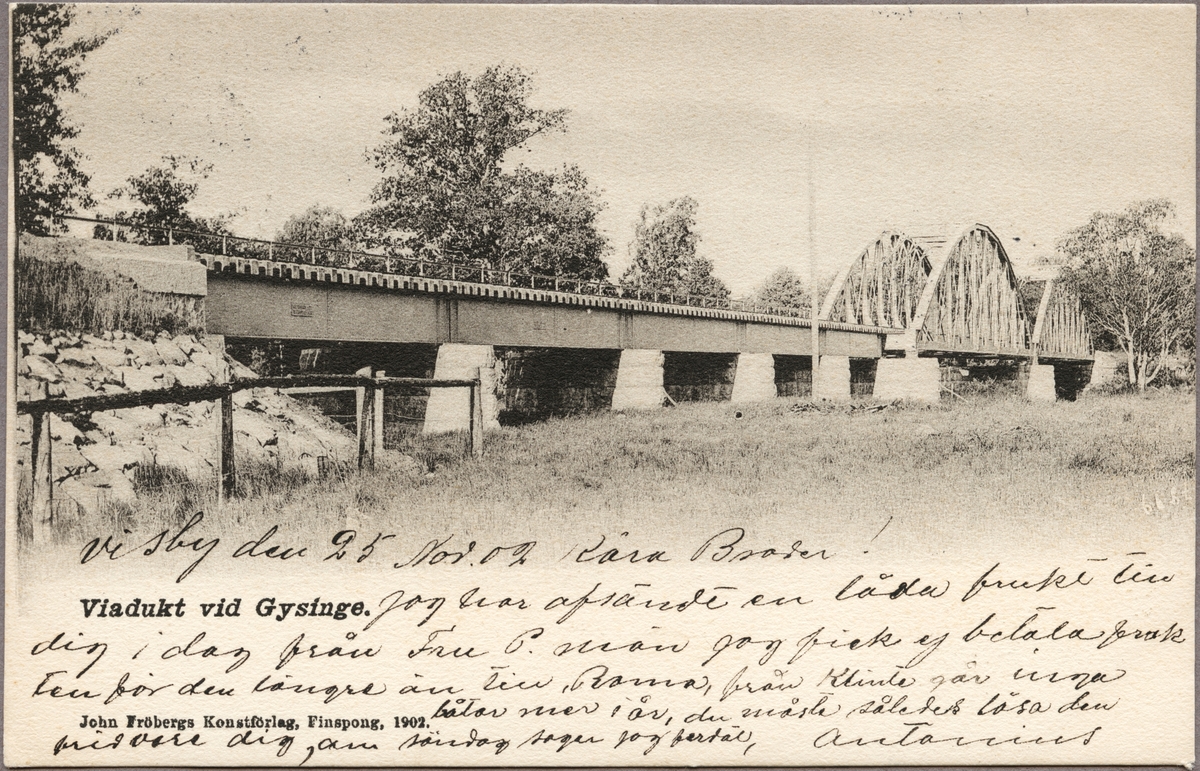 Visby den 25 Nov. 02 Kära Broder!
Viadukt vid Gysinge. Jag har afsändt en låda frukt till
dig i dag från Fru P. män jag fick ej betala frak
ten för den längre än till Roma, från Klinte går inga
båtar mer i år, du måste således lösa den
John Fröbergs Konstförlag, Finspong, 1902.
frid vare dig, om söndag säger jag farväl, Antonius